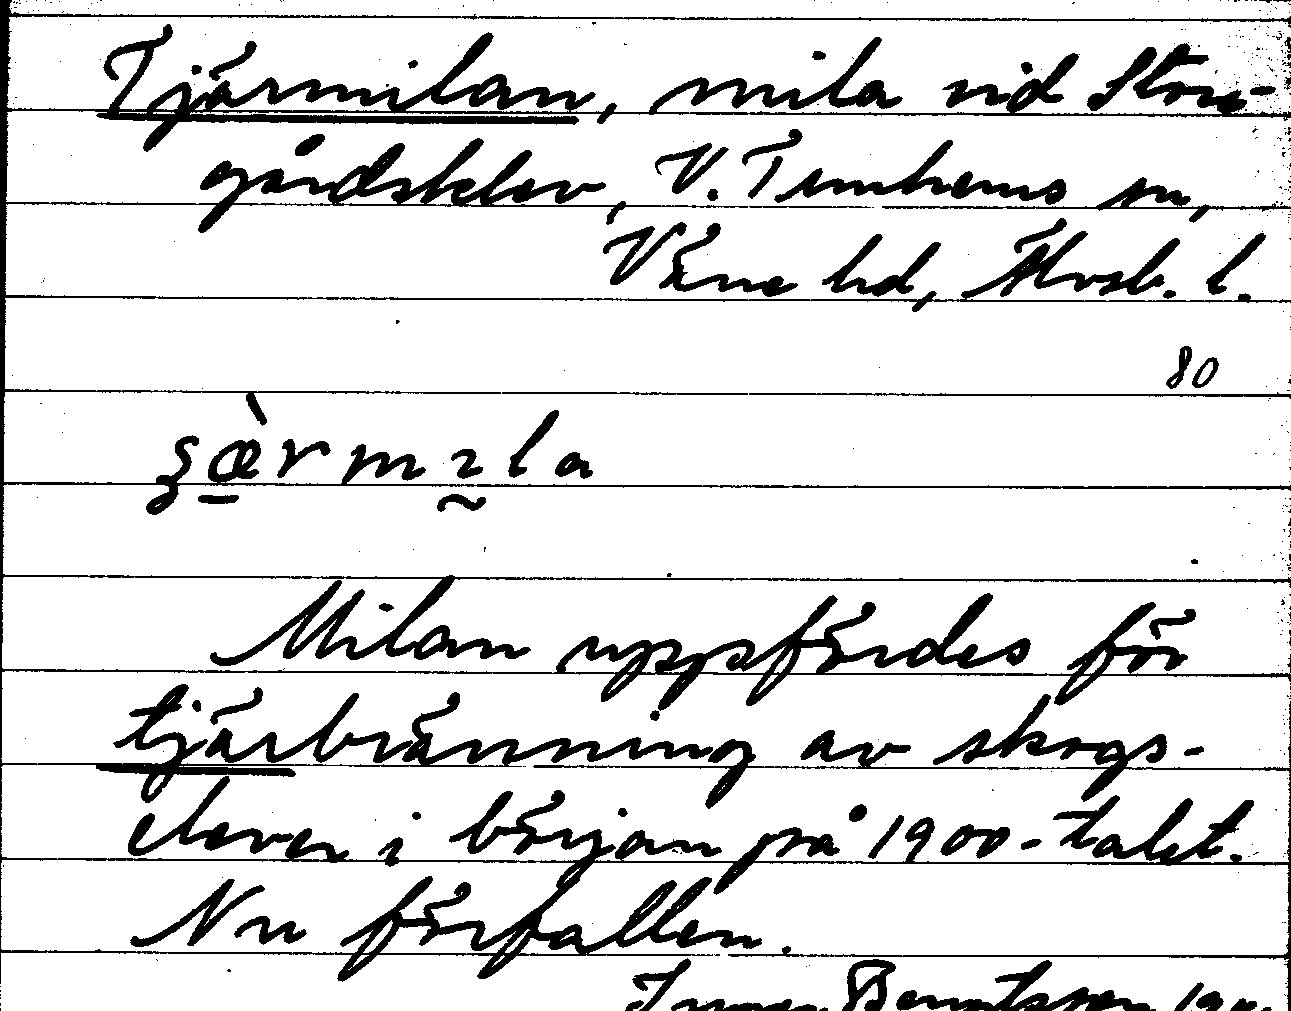 Tjärmilan, mila vid Stom-
gårdsklev, V. Tunhems sn,
Väne hd, Älvsb. l.
80
Milan uppfördes för
tjärbränning av skogs-
elever i början på 1900-talet.
Nu förfallen.